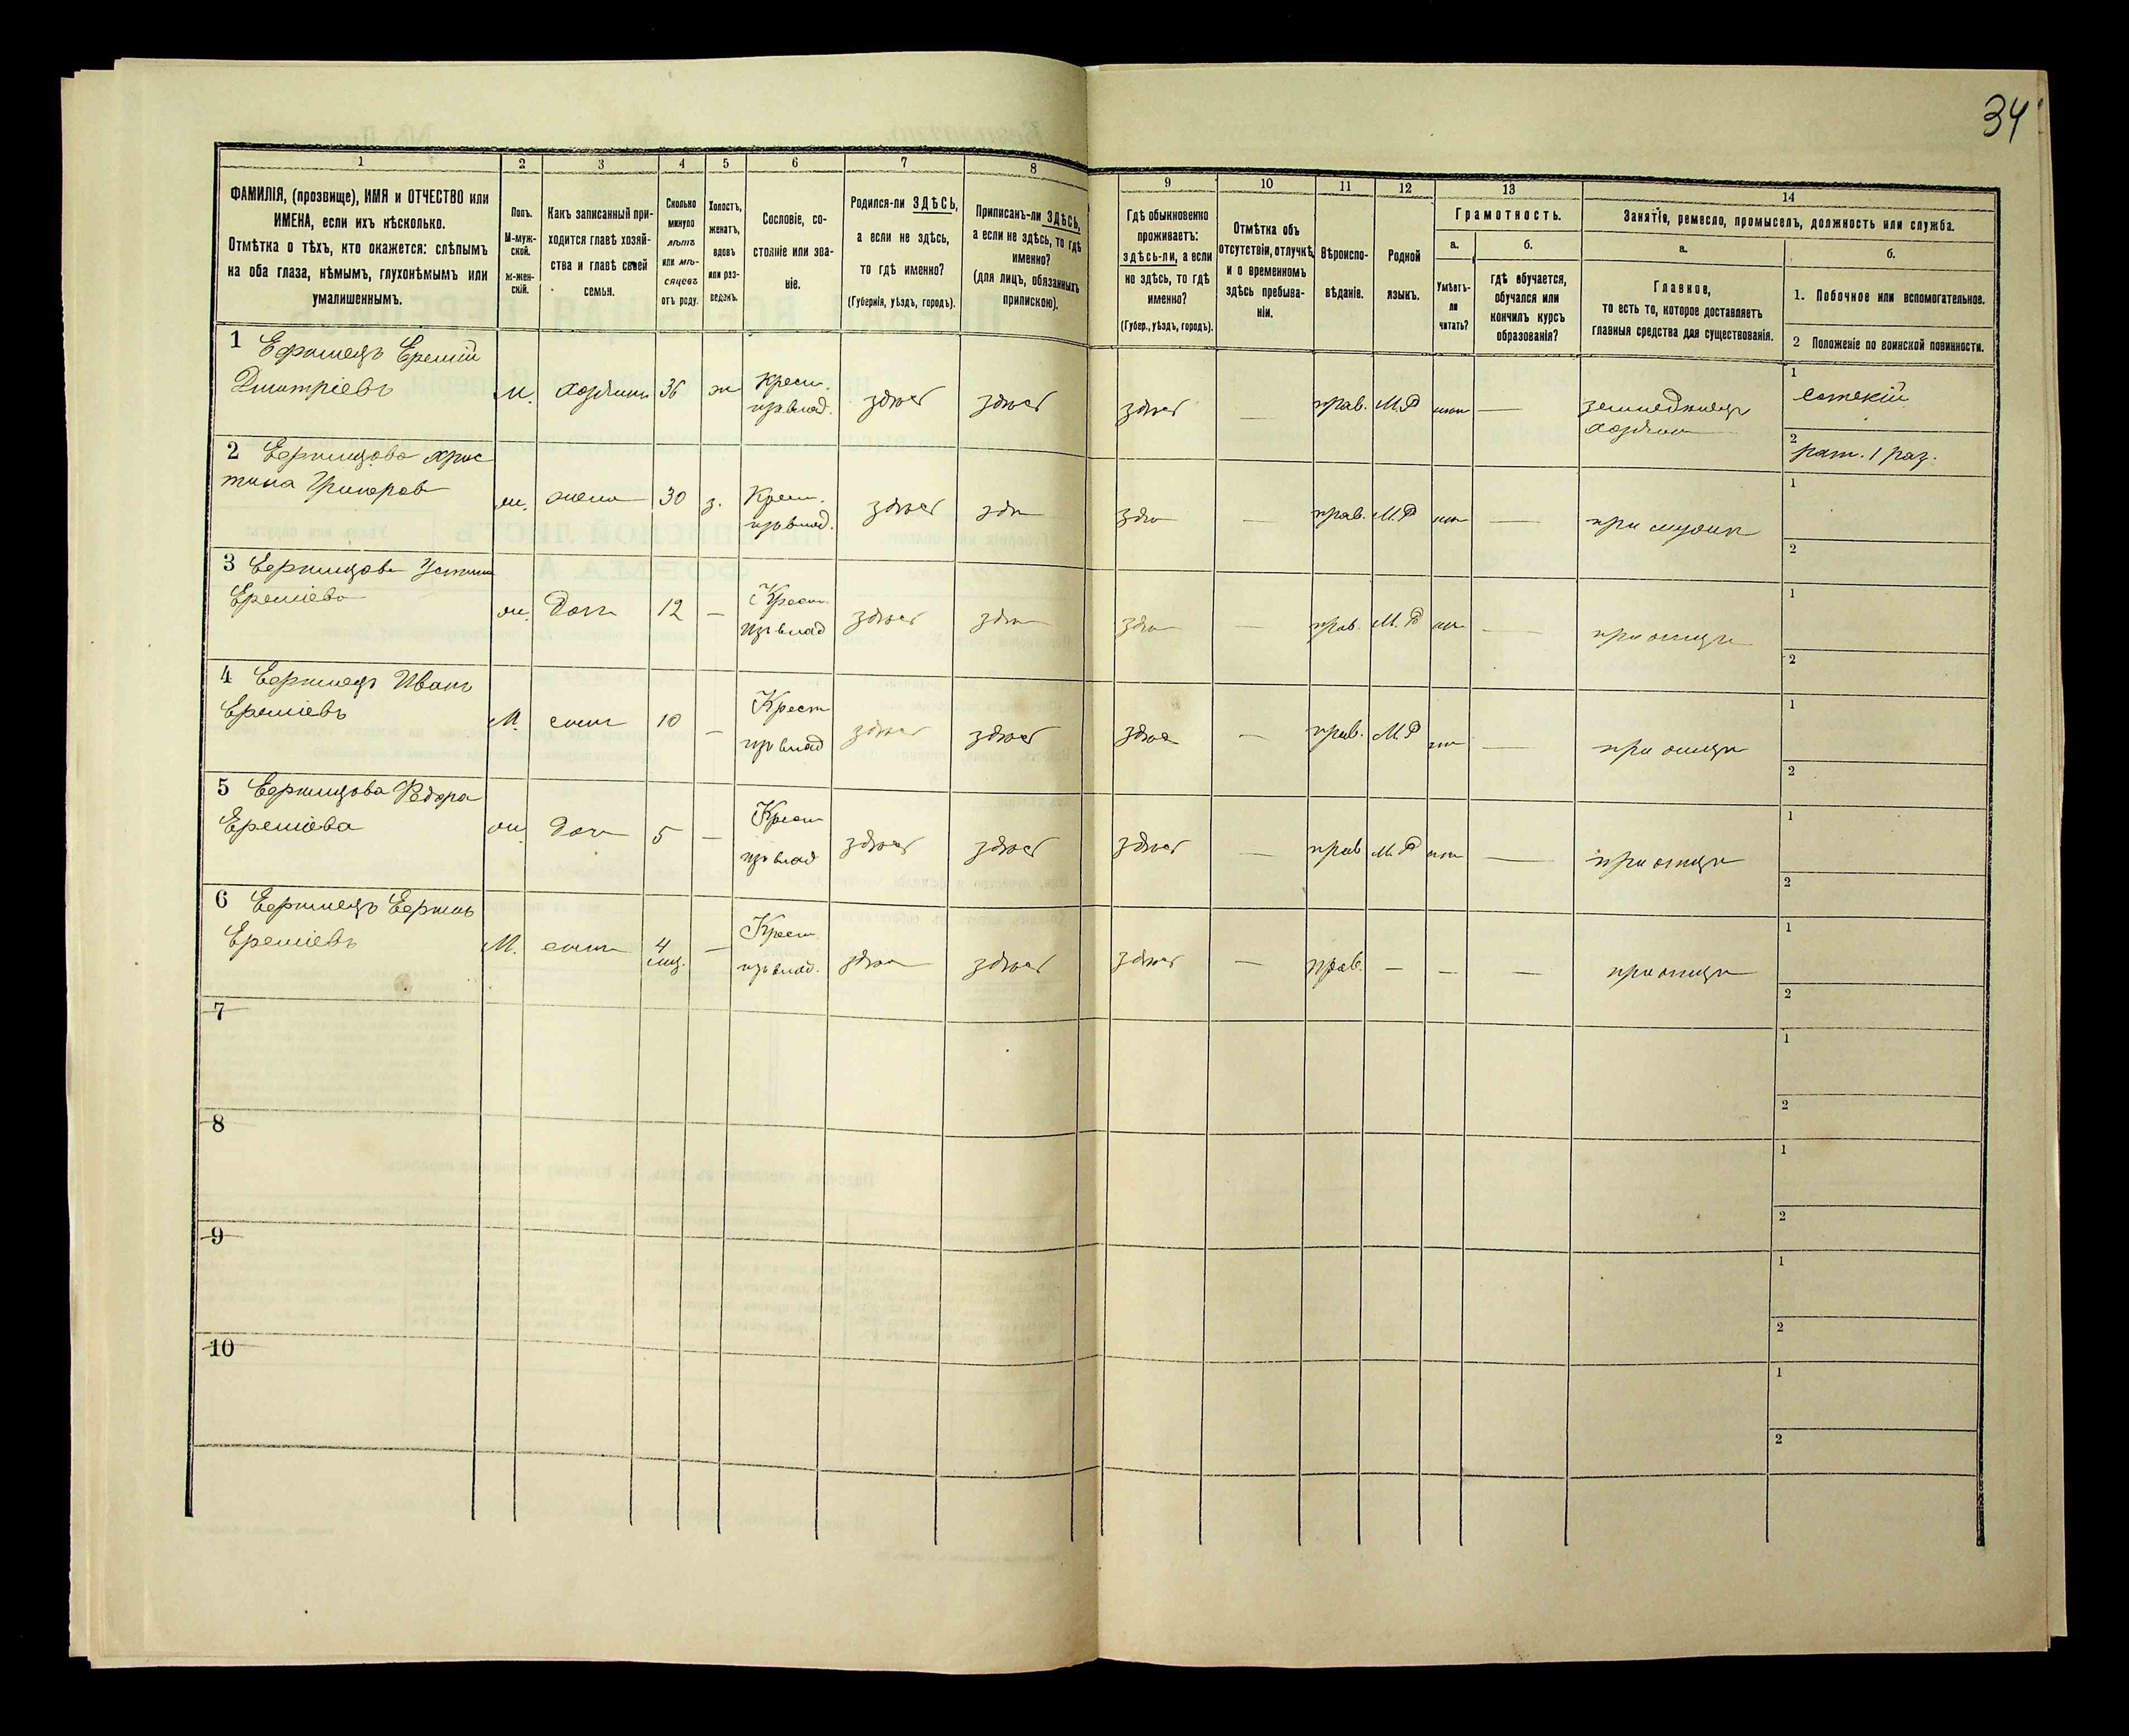 34
1 2 3 4 5 6 7 8 9 10 11 12 13 14
ФАМИЛІЯ, (прозвище), ИМЯ и ОТЧЕСТВО или
ИМЕНА, если ихъ нѣсколько.
Отмѣтка о тѣхъ, кто окажется: слѣпымъ
на оба глаза, нѣмымъ, глухонѣмымъ или
умалишеннымъ.
Полъ.
М-муж-
ской.
Ж-жен-
скій.
Какъ записанный при-
ходится главѣ хозяй-
ства и главѣ своей
семьи.
Сколько
минуло
лѣтъ
или мѣ-
сяцевъ
отъ роду.
Холостъ,
женатъ,
вдовъ
или раз-
веденъ.
Сословіе, со-
стояніе или зва-
ніе.
Родился-ли ЗДѢСЬ,
а если не здѣсь,
то гдѣ именно?
(Губернія, уѣздъ, городъ).
Приписанъ-ли ЗДѢСЬ,
а если не здѣсь, то гдѣ
именно?
(для лицъ, обязанныхъ
припискою).
Гдѣ обыкновенно
проживаетъ:
здѣсь-ли, а если
не здѣсь, то гдѣ
именно?
(Губер., уѣздъ, городъ).
Отмѣтка объ
отсутствіи, отлучкѣ
и о временномъ
здѣсь пребыва-
ніи.
Вѣроиспо-
вѣданіе.
Родной
языкъ.
Грамотность.
а.
Умѣетъ-
ли
читать?
б.
гдѣ обучается,
обучался или
кончилъ курсъ
образованія?
Занятіе, ремесло, промыселъ, должность или служба.
а.
Главное,
то есть то, которое доставляетъ
главныя средства для существованія.
б.
1. Побочное или вспомогательное.
2 Положеніе по воинской повинности.
1 Еремій
Дмитріевъ М. хозяинъ 36 ж Крест. изъ влад. здѣсь здѣсь здѣсь — прав. М.Р нѣт — земледѣлецъ хозяин 1 сотскій
2 рат. 1 раз.
2 Хрис
тина Григоров ж. жена 30 з. Крест. изъ влад. здѣсь здѣ здѣ — прав. М.Р нѣт — при мужѣ 1
2
3
Ереміева ж. доч 12 — Крест. изъ влад здѣсь здѣ здѣ — прав. М.Р нѣт — при отцѣ 1
2
4 Иванъ
Ереміевъ М. сынъ 10 — Крест изъ влад здѣсь здѣсь здѣс — прав. М.Р нѣт — при отцѣ 1
2
5
Ереміева ж доч 5 — Крест изъ влад здѣсь здѣсь здѣсь — прав М.Р нѣт — при отцѣ 1
2
6
Ереміевъ М. сынъ 4 мѣц. — Крест изъ влад. здѣс здѣсь здѣсь — прав. — — — при отцѣ 1
2
7 1
2
8 1
2
9 1
2
10 1
2